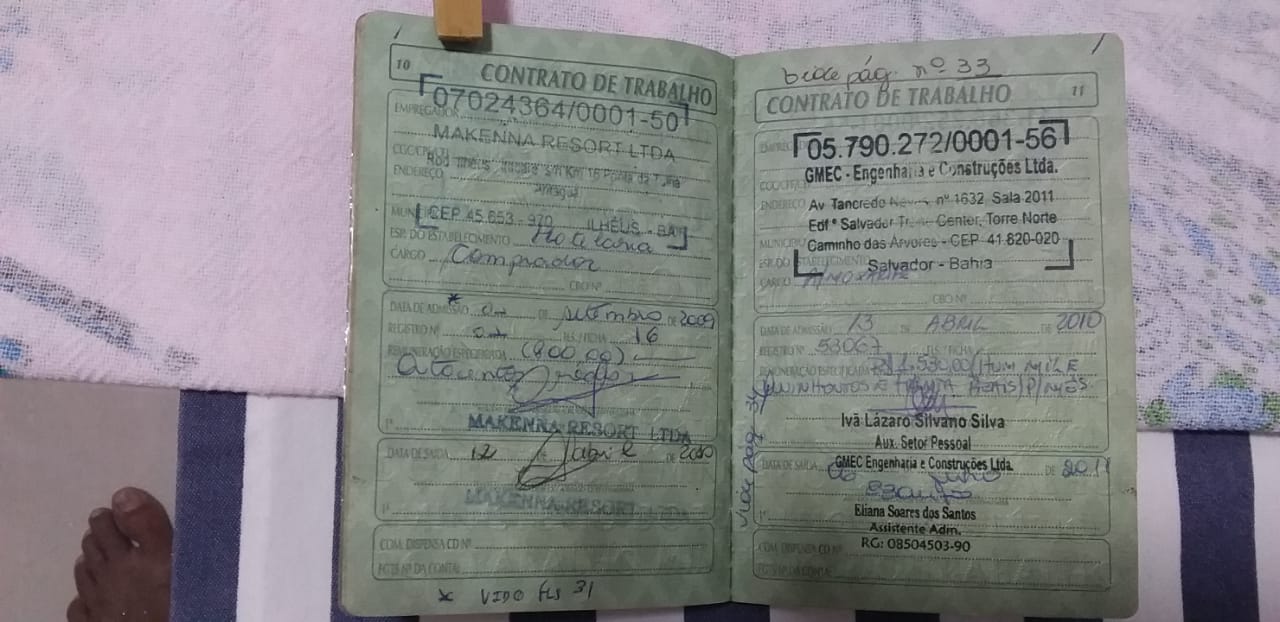 10
CONTRATO DE TRABALHO
07024364/0001-50
EMPREGADOR
MAKENNA RESORT LTDA
CGC/CNPJ
Rod Ilhéus S/N Km 16
ENDEREÇO
CEP 45.653-970 ILHÉUS - BA
ESP. DO ESTABELECIMENTO Hotelaria
CARGO Comprador
CBO Nº
DATA DE ADMISSÃO DE setembro DE 2009
REGISTRO Nº FLS./FICHA 16
REMUNERAÇÃO ESPECIFICADA (800,00)
MAKENNA RESORT LTDA
DATA DE SAÍDA 12 Abril DE 2010
1º MAKENNA RESORT LTDA
COM. DISPENSA CD Nº
FGTS Nº DA CONTA
* VIDO FLS 31
vide pág. nº 33
CONTRATO DE TRABALHO 11
05.790.272/0001-56
GMEC - Engenharia e Construções Ltda.
ENDEREÇO Av Tancredo Neves, nº 1632, Sala 2011
Edfº Salvador Trade Center, Torre Norte
Caminho das Árvores - CEP 41.820-020
Salvador - Bahia
CARGO
CBO Nº
DATA DE ADMISSÃO 13 DE ABRIL DE 2010
REGISTRO Nº 53067 FLS./FICHA
REMUNERAÇÃO ESPECIFICADA R$ 1.530,00 (HUM MIL E
QUINHENTOS E TRINTA REAIS) P/MÊS
Ivã Lázaro Silvano Silva
Aux. Setor Pessoal
GMEC Engenharia e Construções Ltda.
DATA DE SAÍDA DE 2011
Eliana Soares dos Santos
Assistente Adm.
RG: 08504503-90
COM. DISPENSA CD Nº
FGTS Nº DA CONTA
vide pág. 34